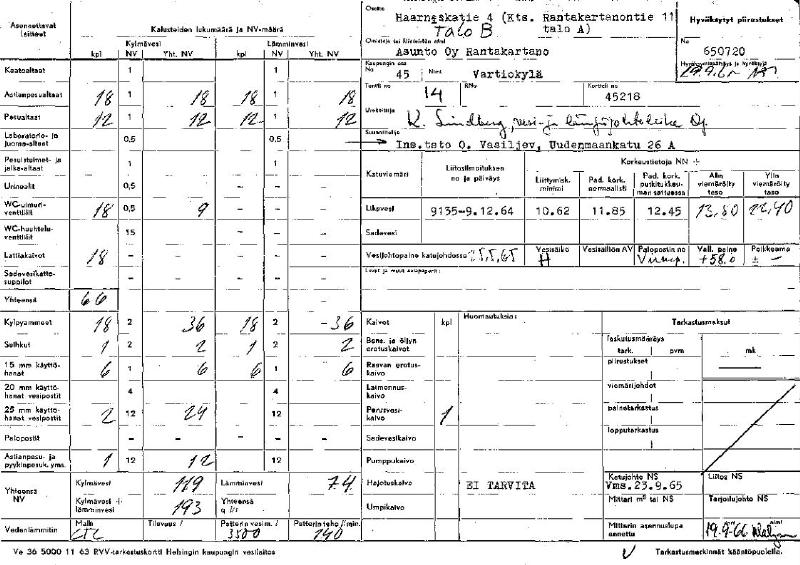 Asennettavat laitteet
Kalusteiden lukumäärä ja NV-määrä
Kylmävesi Lämminvesi
kpl NV Yht. NV kpl NV Yht. NV
Kaatoaltaat 1 – – 1 –
Astianpesualtaat 18 1 18 18 1 18
Pesualtaat 12 1 12 12 1 12
Laboratorio- ja juoma-altaat 0,5 – – 0,5 –
Pesuistuimet- ja jalka-altaat 1 – – 1 –
Urinoelit 0,5 – – – –
WC-uimuriventtiilit 18 0,5 9 – – –
WC-huuhteluventtiilit 15 – – – –
Lattiakaivot 18 – – – – –
Sadevesikattosuppilot – – – – –
Yhteensä 66
Kylpyammeet 18 2 36 18 2 36
Suihkut 1 2 2 1 2 2
15 mm käyttöhanat 6 1 6 6 1 6
20 mm käyttöhanat vesipostit 4 4
25 mm käyttöhanat vesipostit 2 12 24 12
Palopostit – – – –
Astianpesu- ja pyykinpesuk. yms. 1 12 12 12
Yhteensä NV
Kylmävesi 119 Lämminvesi 74
Kylmävesi + lämminvesi 193 Yhteensä q l/s
Vedenlämmitin
Malli CTC Tilavuus l Patterin vesim. l 3500 Patterin teho l/min. 140
Ve 36 5000 11 63 RVV-tarkastuskortti Helsingin kaupungin vesilaitos
Osoite
Haarneskatie 4 (Kts. Rantakartanontie 11
Talo B talo A)
Omistaja tai kiinteistön nimi
Asunto Oy Rantakartano
Kaupungin osa
No 45 Nimi Vartiokylä
Tontti no 14 RNo Kortteli no 45218
Urakoitsija
K. Lindberg, vesi- ja lämpöjohtoliike Oy.
Suunnittelija
Ins.tsto O. Vasiljev, Uudenmaankatu 26 A
Hyväksytyt piirustukset
No 650720
Katuviemäri
Liitosilmoituksen no ja päiväys
Korkeustietoja NN +
Liittymisk. minimi
Pad. kork. normaalisti
Pad. kork. poikkeuksellisissa
Alin viemäröity taso
Ylin viemäröity taso
Likavesi 9135-9.12.64 10.62 11.85 12.45 13,80 22,40
Sadevesi
Vesijohtopaine katujohdossa 25.5.65 Vesisäiliö H Vesisäiliön AV Palopostin no Vall. paine +58.0 Poikkeama ± –
Luvat ja muut asiapaperit:
Kaivot kpl Huomautuksia:
Bens. ja öljyn erotuskaivot
Rasvan erotuskaivo
Laimennuskaivo
Perusvesikaivo 1
Sadevesikaivo
Pumppukaivo
Hajotuskaivo EI TARVITA
Umpikaivo
Tarkastusmaksut
Laskutusmääräys
tark. pvm mk
piirustukset
viemärijohdot
painetarkastus
lopputarkastus
Katujohto NS
Vms.23.9.65
Liitos NS
Mittari m³ tai NS
Tarjoilujohto NS
Mittarin asennuslupa annettu 19.9.66
Tarkastusmerkinnät kääntöpuolella.